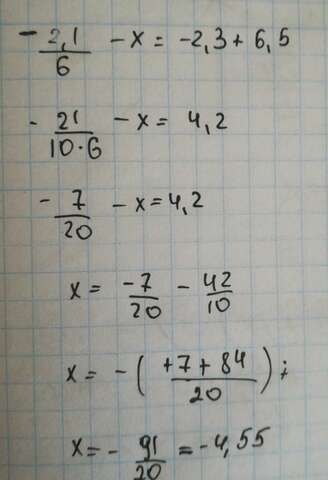 - 2,1/6 - x = -2,3 + 6,5
- 21/10·6 - x = 4,2
- 7/20 - x = 4,2
x = -7/20 - 42/10
x = - ( +7 + 84/20 ) ;
x = - 91/20 = -4,55